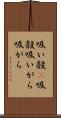 吸い殻 吸
殻吸いがら
吸がら